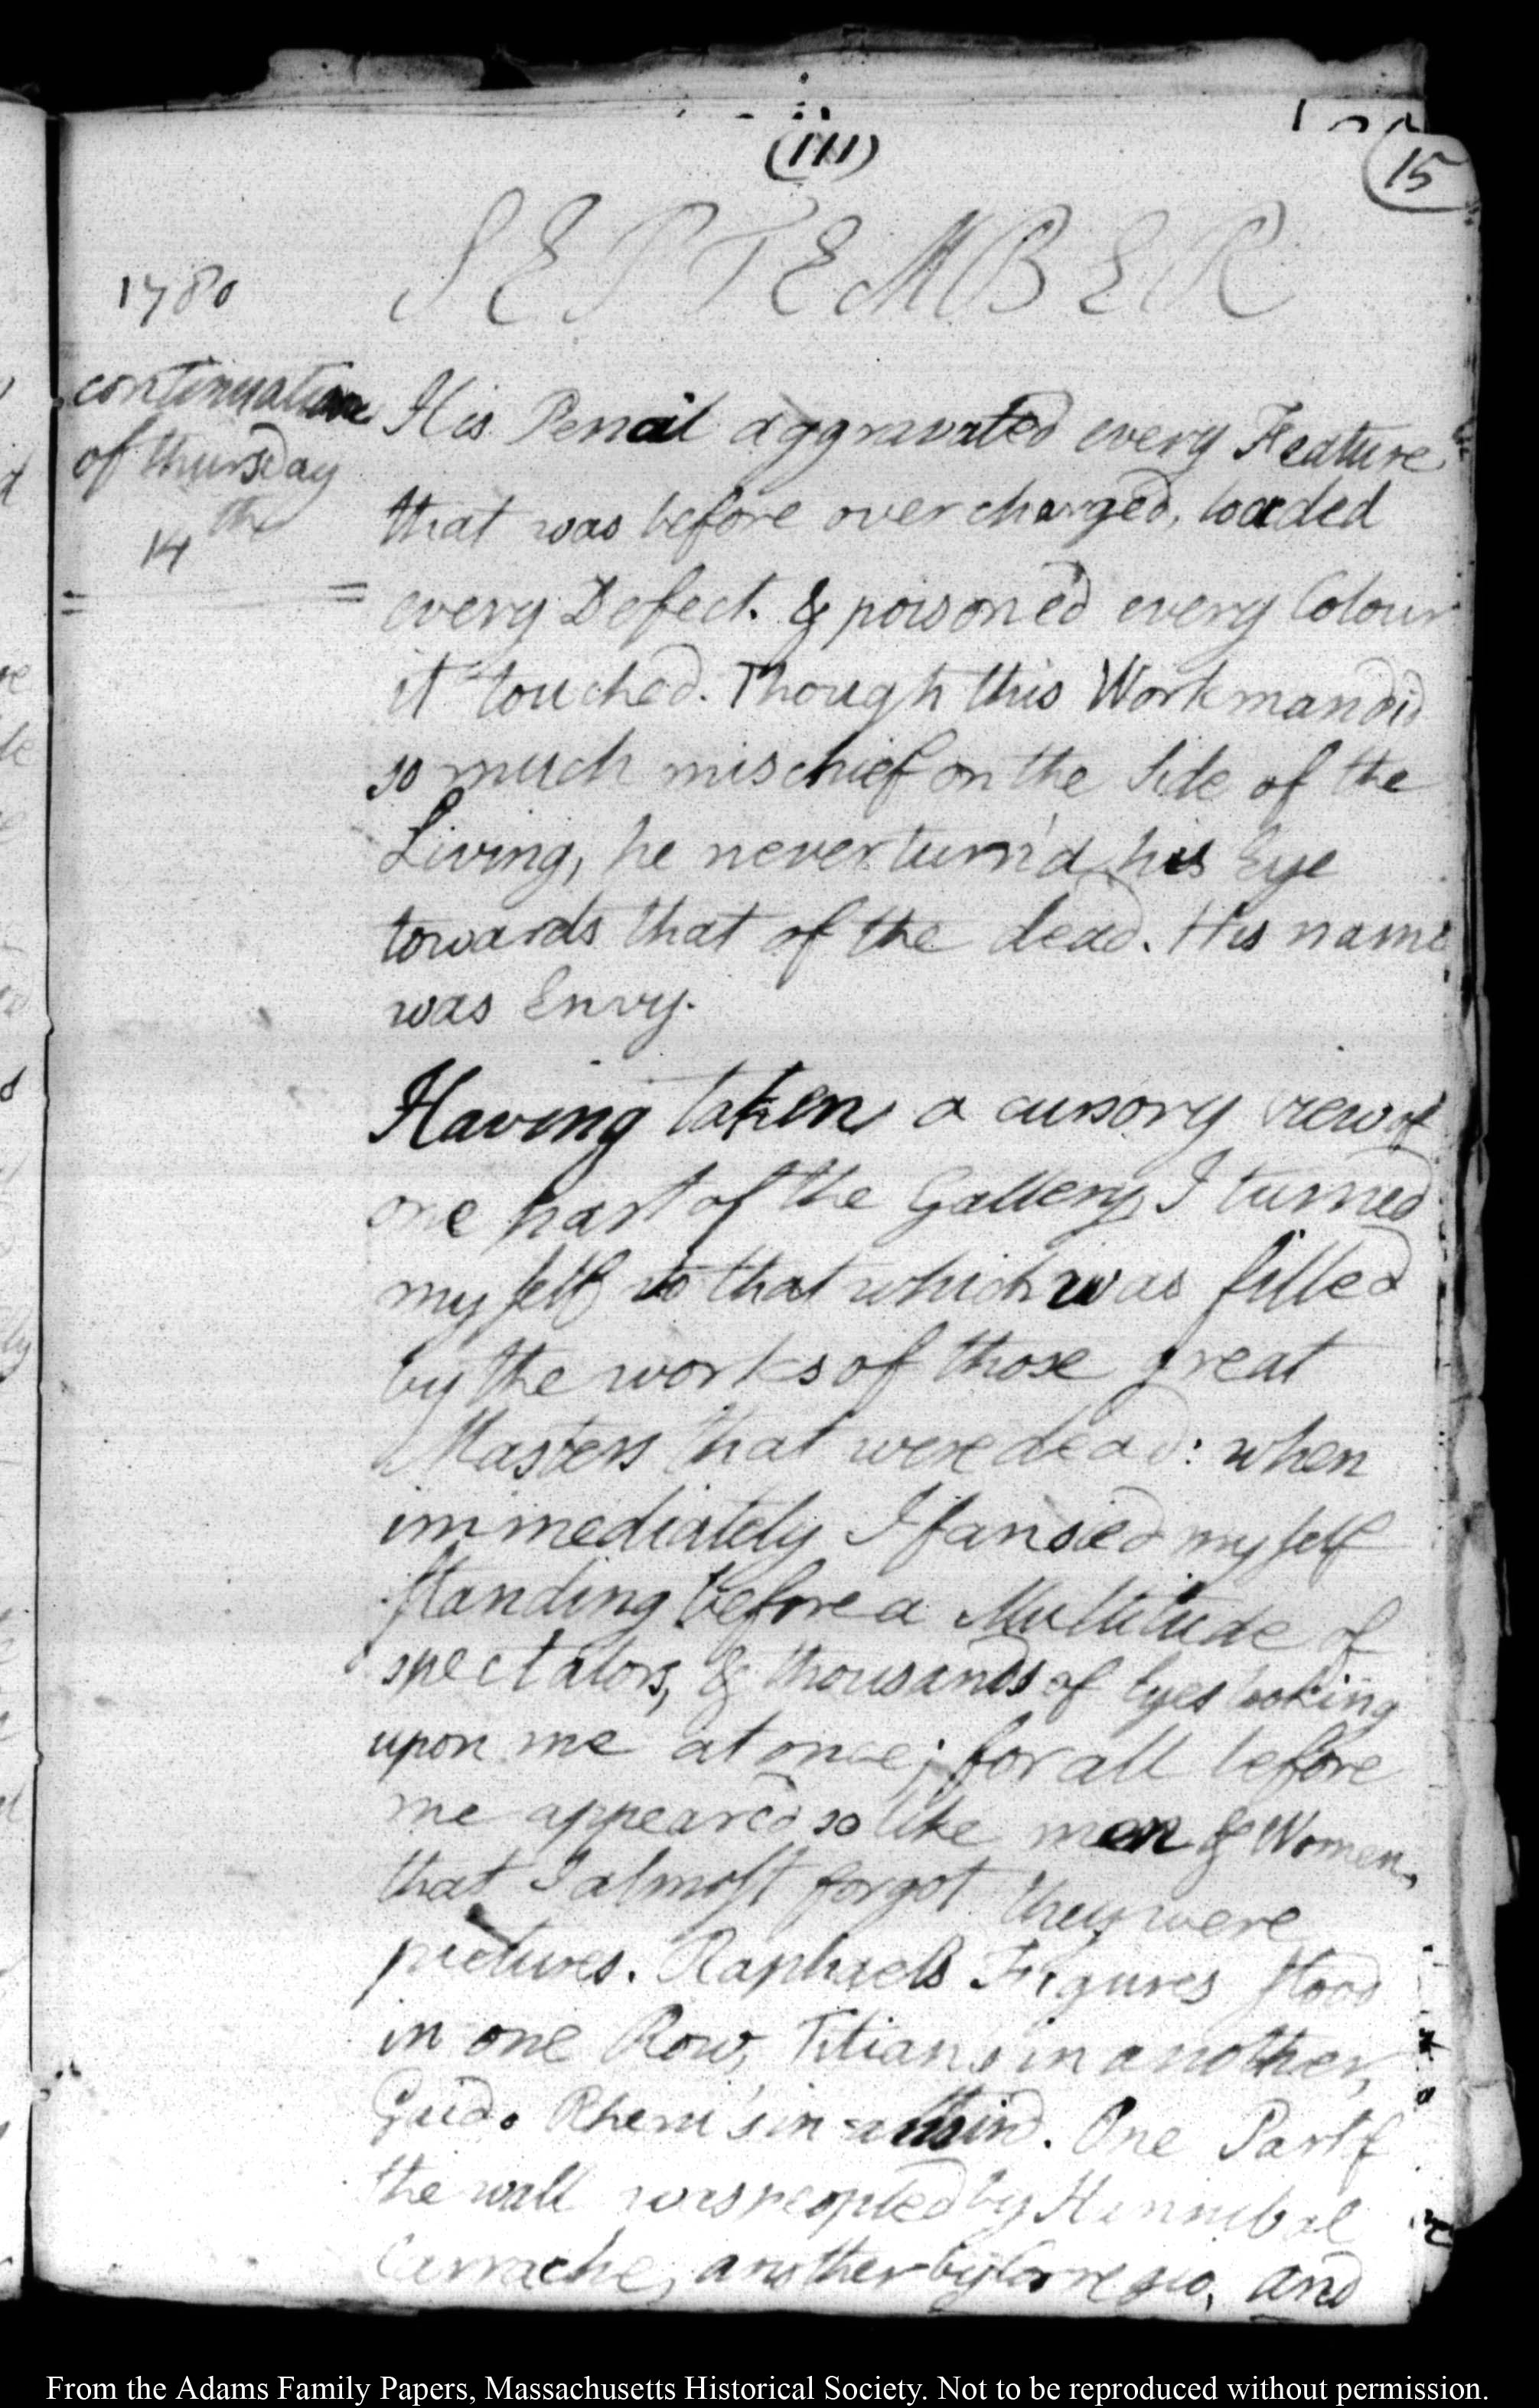 (111)
15
SEPTEMBER
1780
continuation
of thursday
14 the
His Pencil aggravated every Feature
that was before overcharged, loaded
every Defect. & poison'ed every Colour
it touched. Though this Workman did
so much mischief on the Side of the
Living, he never turn'd his Eye
towards that of the dead. His name
was Envy.
Having taken a cursory view of
one part of the Gallery, I turned
my self to that which was filled
by the works of those great
Masters that were dead: when
immediately I fansied my self
standing before a Multitude of
spectators, & thousands of Eyes looking
upon me at once; for all before
me appeared so like men & Women,
that I almost forgot they were
pictures. Raphaels Figures stood
in one Row, Titians in another,
Guido Rheni's in a third. One Part of
the wall was peopled by Hannibal
Carrache, another by Corregio, and
From the Adams Family Papers, Massachusetts Historical Society. Not to be reproduced without permission.